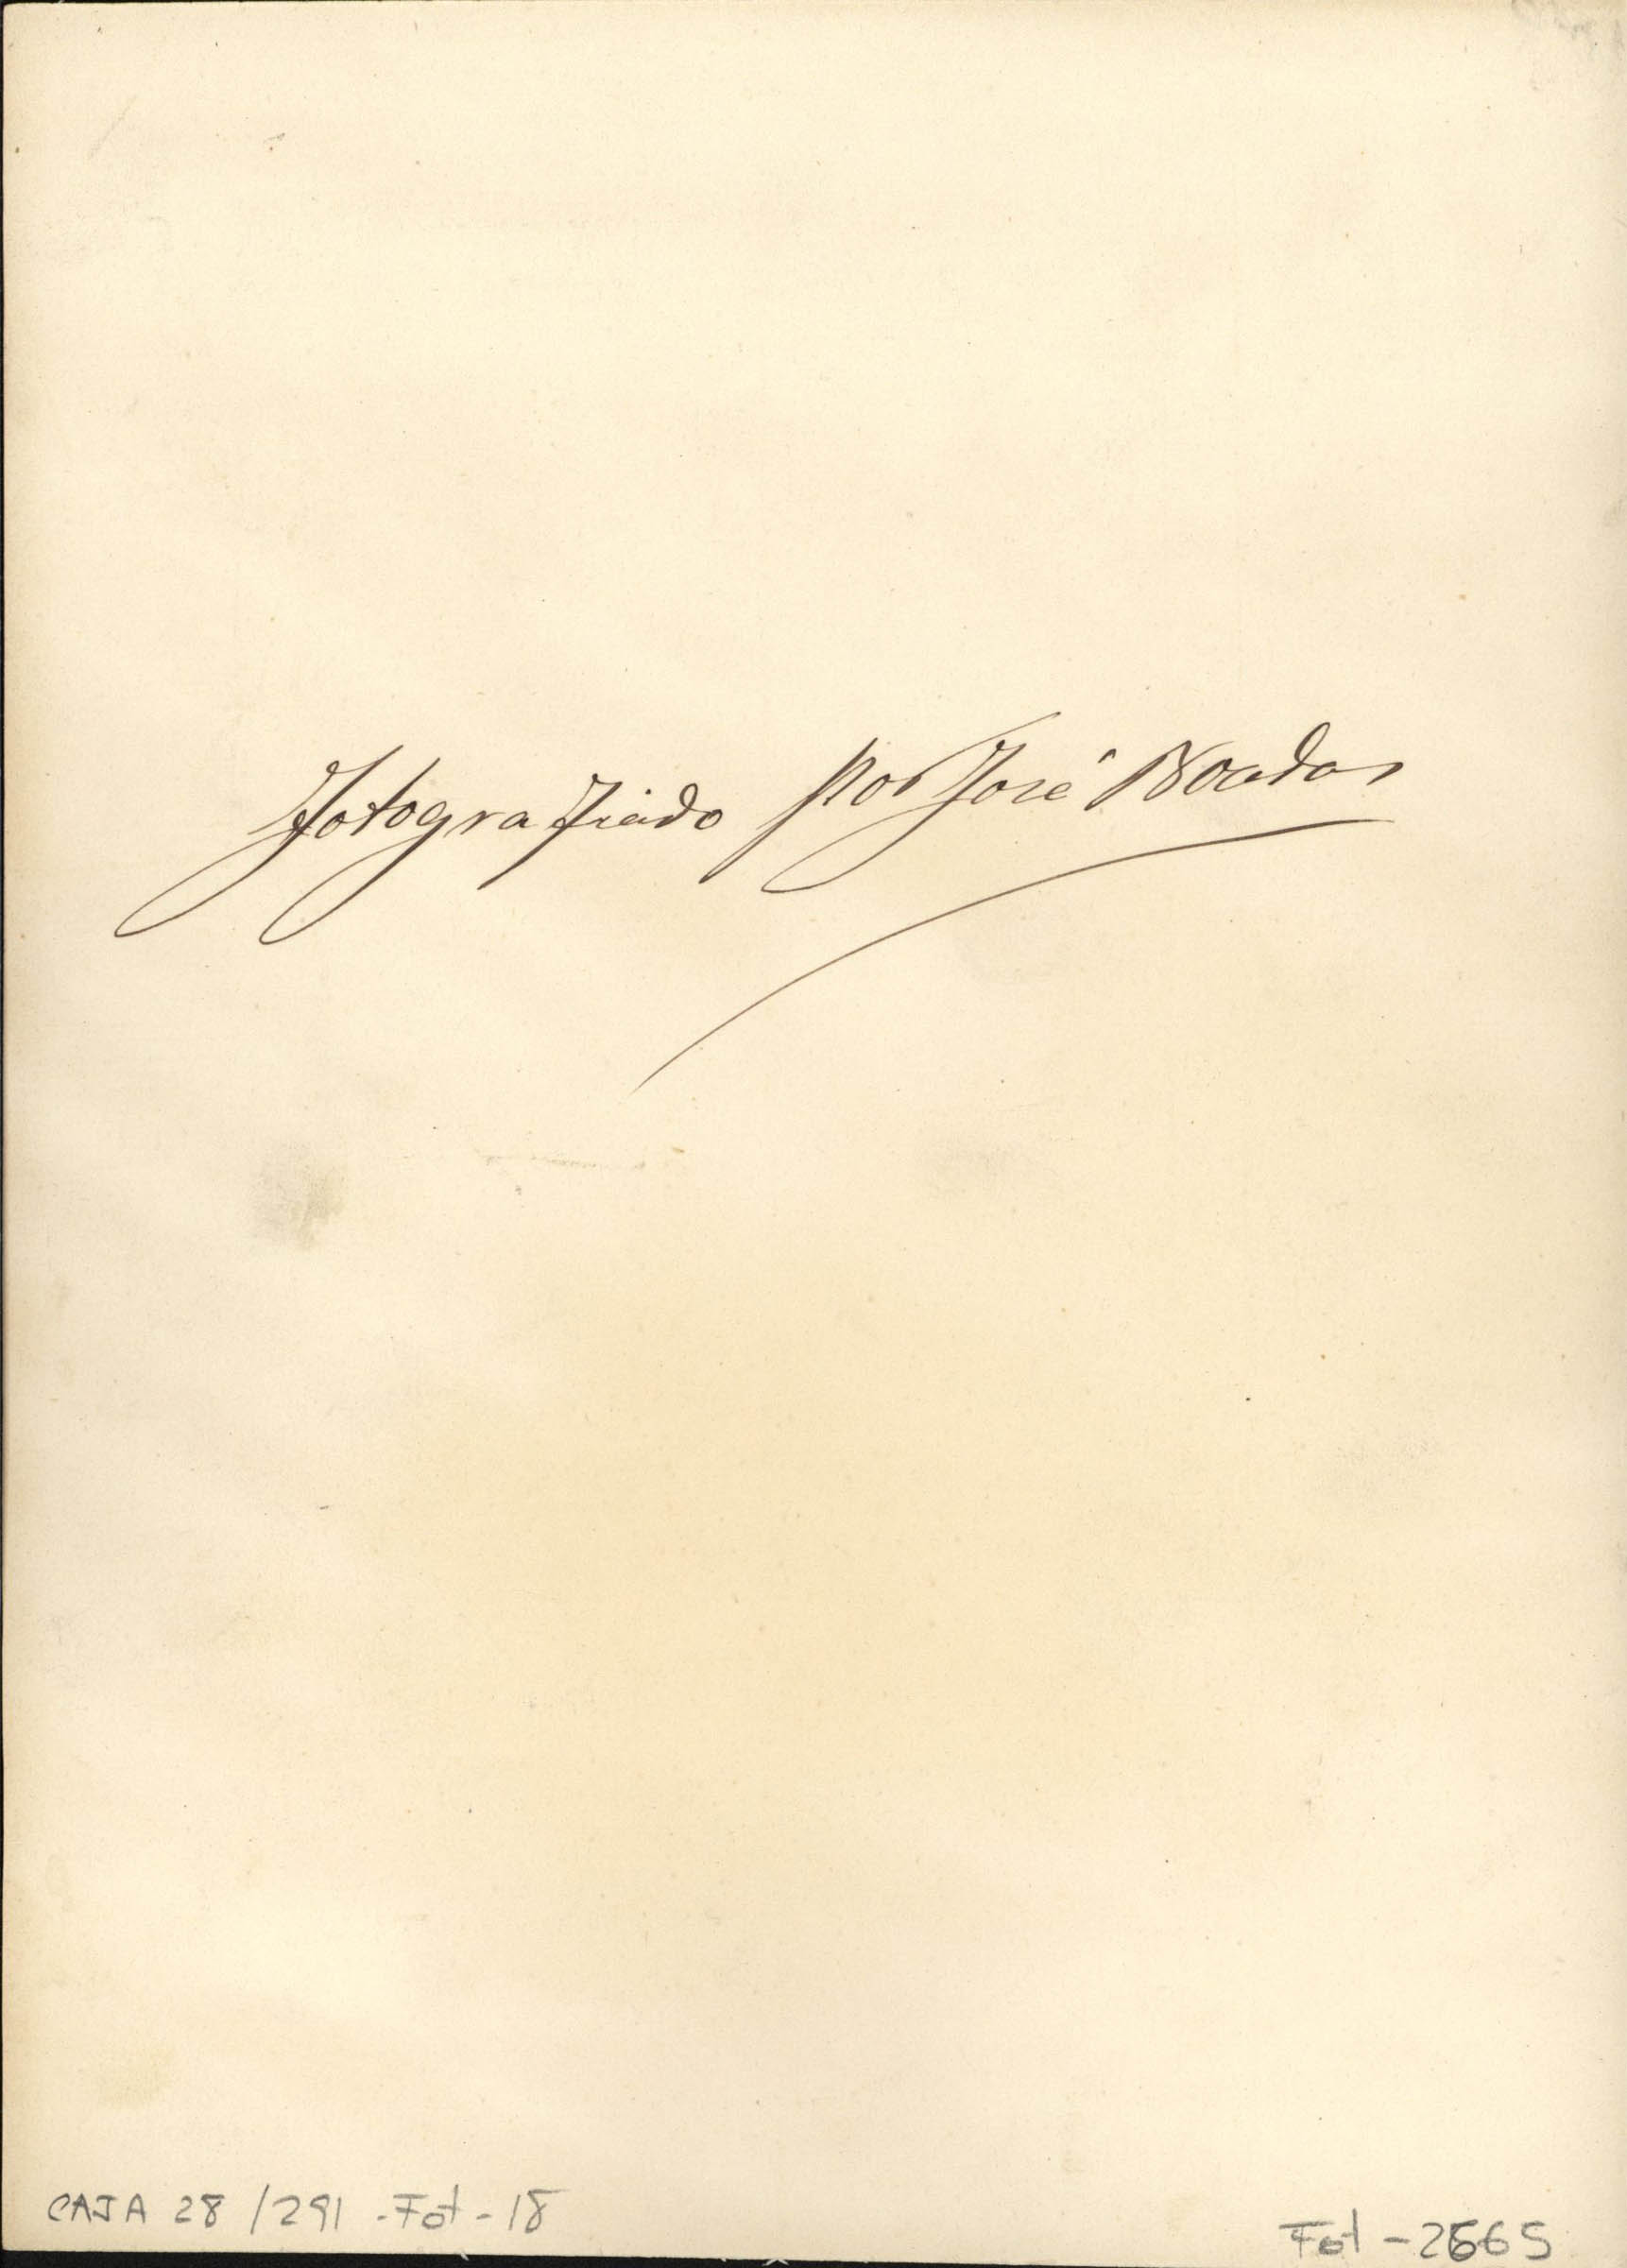 Fotografiado por José Boadas
CAJA 28 / 291 - Fot - 18
Fot - 2665